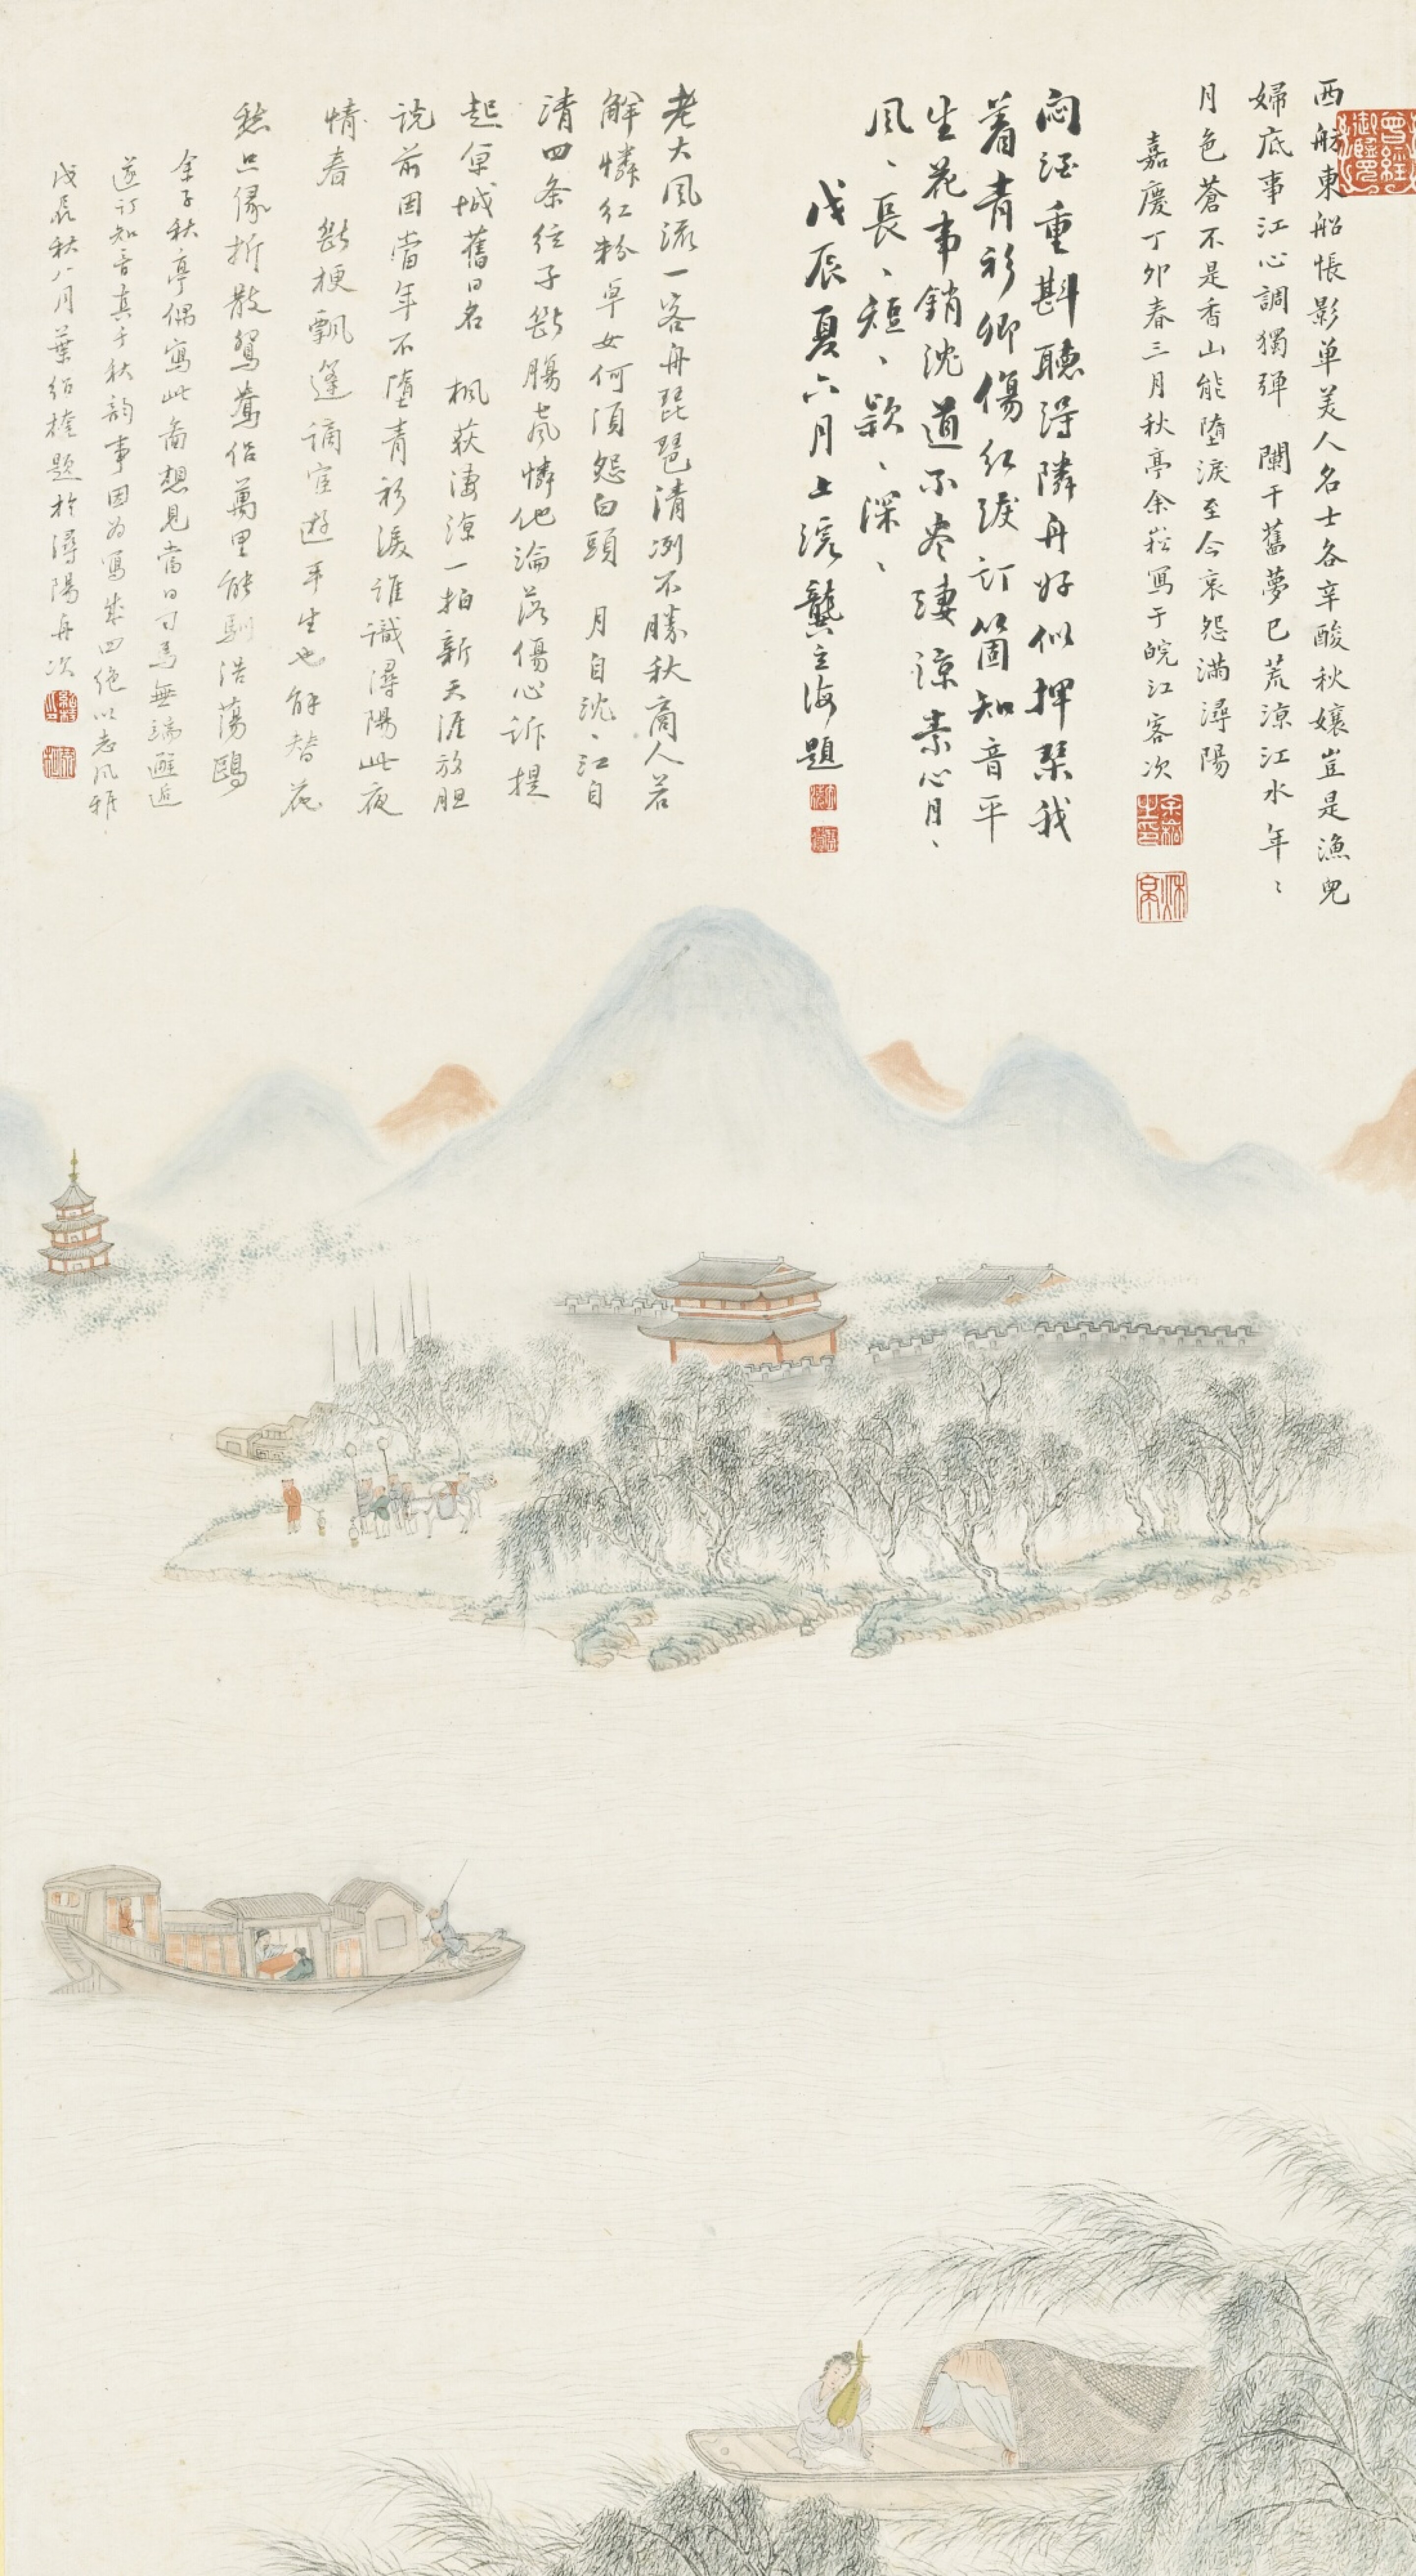 西舫東船悵影単美人名士各辛酸秋孃豈是漁兒
婦底事江心調獨弾 闌干舊夢已荒涼江水年〻
月色蒼不是香山能墮淚至今哀怨滿潯陽
嘉慶丁卯春三月秋亭余崧寫于皖江客次
悶酒重斟聽得隣舟好似抻琹我
着青衫卿傷紅淚訂箇知音平
生花事銷沈道不盡淒涼素心月、
風、長、短、款、深、
戊辰夏六月上浣龔立海題
老大風流一客舟琵琶清冽不勝秋商人若
解憐紅粉卓女何須怨白頭 月自沈、江自
清四条絃子斷腸聲憐他淪落傷心訴提
起京城舊日名 楓荻淒涼一拍新天涯放胆
説前因當年不墮青衫淚誰識潯陽此夜
情春 斷梗飄蓬謫宦遊平生也解替花
愁只緣折散鴛鴦侣萬里能馴浩蕩鷗
余子秋亭偶寫此啚想見當日司馬無端邂逅
遂訂知音真千秋韵事因為寫朱四絕以志風雅
戊辰秋八月葉紹楏題於潯陽舟次